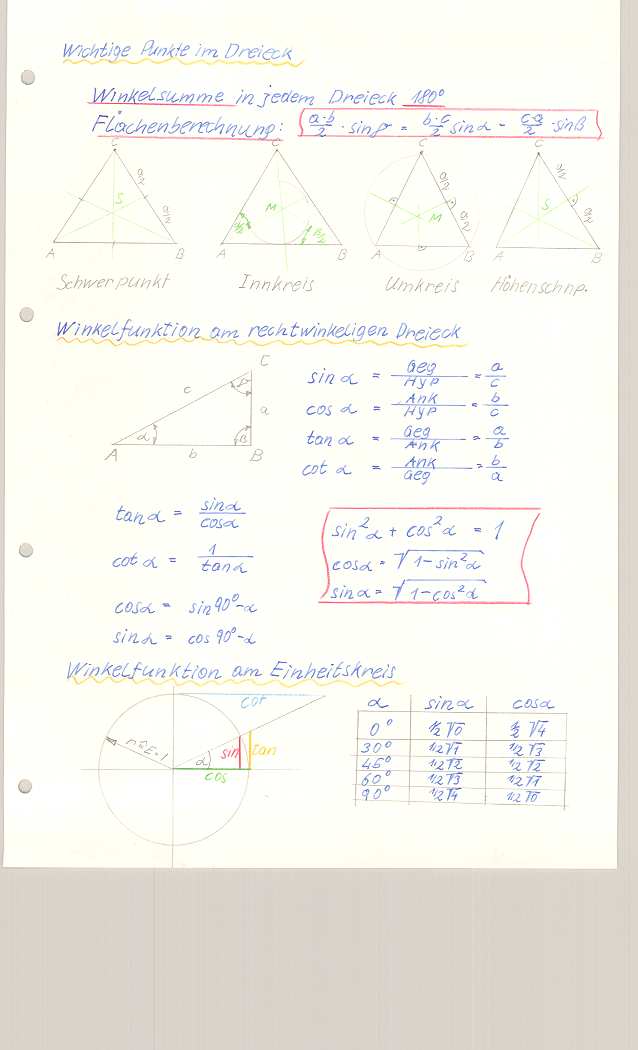 Wichtige Punkte im Dreieck
Winkelsumme in jedem Dreieck 180°
Flächenberechnung: a·b/2 · sinγ = b·c/2 sinα - c·a/2 · sinß
C C C C
a/2 a/2 a/2
S M M S
a/2 a/2 a/2
α/2 ß/2
A B A B A B A B
Schwerpunkt Innkreis Umkreis Höhenschnp.
Winkelfunktion am rechtwinkeligen Dreieck
C
c γ a
α ß
A b B
sin α = Geg/Hyp = a/c
cos α = Ank/Hyp = b/c
tan α = Geg/Ank = a/b
cot α = Ank/Geg = b/a
tanα = sinα/cosα
cot α = 1/tanα
cosα = sin90°-α
sinα = cos90°-α
sin²α + cos²α = 1
cosα = √1-sin²α
sinα = √1-cos²α
Winkelfunktion am Einheitskreis
cot
sin tan
α
cos
α sinα cosα
0° 1/2 √0 1/2 √4
30° 1/2 √1 1/2 √3
45° 1/2 √2 1/2 √2
60° 1/2 √3 1/2 √1
90° 1/2 √4 1/2 √0